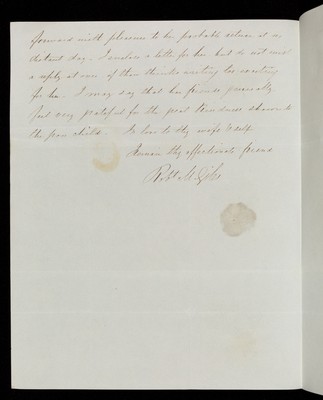 forward with pleasure to her probable return at no
distant day. I enclose a letter for her but do not want
a reply at once if thou thinks writing too exciting
for her. I may say that her friends generally
feel very grateful for the great kindness shown to
the poor child. In love to thy wife & self
Remain thy affectionate friend
Robt M